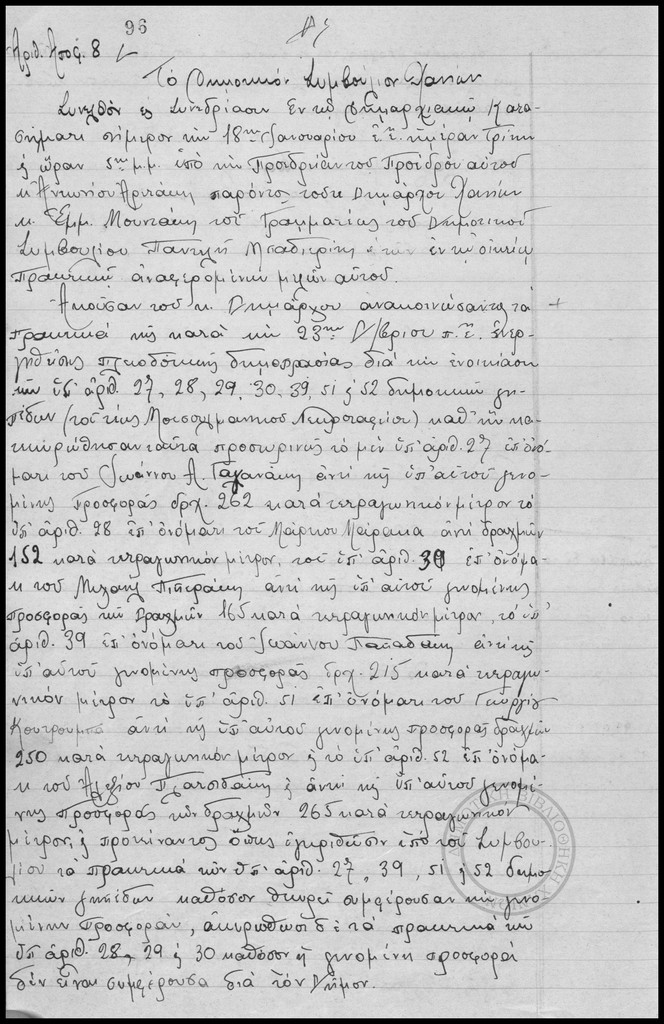 96
Αριθ. Αποφ. 8
Το Δημοτικόν Συμβούλιον Χανίων
Συνελθόν εις Συνεδρίασιν εν τω Δημαρχιακώ Κατα-
στήματι σήμερον την 18ην Ιανουαρίου ε.έ. ημέραν Τρίτην
& ώραν 5ην μ.μ. υπό την Προεδρίαν του Προέδρου αυτού
κ. Αντωνίου παρόντος του Δημάρχου Χανίων
κ. Εμμ. Μουντάκη του Γραμματέως του Δημοτικού
Συμβουλίου Παντελή εν τω οικείω
πρακτικώ αναφερομένων μελών αυτού.
Ακούσαν του κ. Δημάρχου ανακοινώσαντος τα
πρακτικά της κατά την 23ην Δ/βρίου π.έ. ενερ-
γηθείσης πλειοδοτικής δημοπρασίας διά την ενοικίασιν
των υπ' αριθ. 27, 28, 29, 30, 39, 51 & 52 δημοτικών γη-
πέδων (του τέως Μουσουλμανικού Νεκροταφείου) καθ' ην κα-
τεκυρώθησαν ταύτα προσωρινώς το μεν υπ' αριθ. 27 επ' ονό-
ματι του Ιωάννου Α. αντί της υπ' αυτού γενο-
μένης προσφοράς δρχ. 262 κατά τετραγωνικόν μέτρον το
υπ' αριθ. 28 επ' ονόματι του Μάρκου αντί δραχμών
152 κατά τετραγωνικόν μέτρον, του υπ' αριθ. 30 επ' ονόμα-
τι του Μιχαήλ Πιπεράκη αντί της υπ' αυτού γενομένης
προσφοράς των δραχμών 165 κατά τετραγωνικόν μέτρον, το υπ'
αριθ. 39 επ' ονόματι του Ιωάννου Παπαδάκη αντί της
υπ' αυτού γενομένης προσφοράς δρχ. 215 κατά τετραγω-
νικόν μέτρον το υπ' αριθ. 51 επ' ονόματι του Γεωργίου
αντί της υπ' αυτού γενομένης προσφοράς δραχμών
250 κατά τετραγωνικόν μέτρον & το υπ' αριθ. 52 επ' ονόμα-
τι του Αλεξίου Πλατσιδάκη & αντί της υπ' αυτού γενομέ-
νης προσφοράς των δραχμών 265 κατά τετραγωνικόν
μέτρον, & προτείναντος όπως εγκριθώσιν υπό του Συμβου-
λίου τα πρακτικά των υπ' αριθ. 27, 39, 51 & 52 δημο-
τικών γηπέδων καθόσον θεωρεί συμφέρουσαν την γενο-
μένην προσφοράν, ακυρωθώσι δε τα πρακτικά των
υπ' αριθ. 28, 29 & 30 καθόσον η γενομένη προσφορά
δεν είναι συμφέρουσα διά τον Δήμον.
ΔΗΜΟΤΙΚΗ ΒΙΒΛΙΟΘΗΚΗ